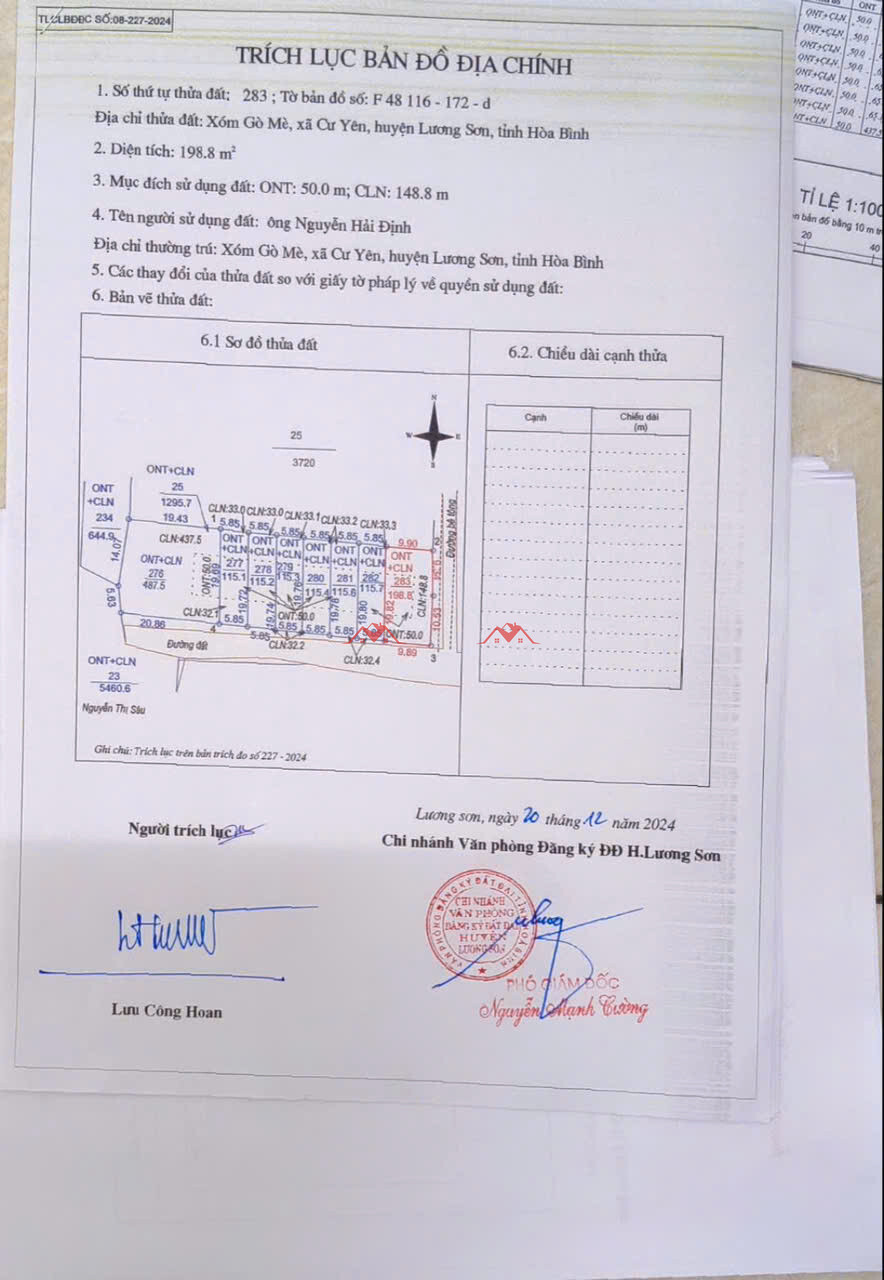 TLCLBĐĐC SỐ:08-227-2024
TRÍCH LỤC BẢN ĐỒ ĐỊA CHÍNH
1. Số thứ tự thửa đất: 283 ; Tờ bản đồ số: F 48 116 - 172 - d
Địa chỉ thửa đất: Xóm Gò Mè, xã Cư Yên, huyện Lương Sơn, tỉnh Hòa Bình
2. Diện tích: 198.8 m²
3. Mục đích sử dụng đất: ONT: 50.0 m; CLN: 148.8 m
4. Tên người sử dụng đất: ông Nguyễn Hải Định
Địa chỉ thường trú: Xóm Gò Mè, xã Cư Yên, huyện Lương Sơn, tỉnh Hòa Bình
5. Các thay đổi của thửa đất so với giấy tờ pháp lý về quyền sử dụng đất:
6. Bản vẽ thửa đất:
6.1 Sơ đồ thửa đất
6.2. Chiều dài cạnh thửa
Cạnh
Chiều dài
(m)
N
W
E
S
25
3720
ONT+CLN
25
1295.7
19.43
ONT
+CLN
234
644.9
14.07
5.63
CLN:437.5
ONT+CLN
276
487.5
ONT:50.0
19.69
CLN:32.1
20.86
CLN:33.0
CLN:33.0
CLN:33.1
CLN:33.2
CLN:33.3
1
5.85
5.85
5.85
5.85
5.85
9.90
2
ONT
+CLN
277
115.1
ONT
+CLN
278
115.2
ONT
+CLN
279
115.3
ONT
+CLN
280
115.4
ONT
+CLN
281
115.6
ONT
+CLN
282
115.7
ONT
+CLN
283
198.8
CLN:148.8
9.34
10.53
Đường bê tông
19.72
19.74
19.76
19.78
19.80
19.82
ONT:50.0
ONT:50.0
4
5.85
5.85
5.85
5.85
5.85
9.89
3
CLN:32.2
CLN:32.4
Đường đất
ONT+CLN
23
5460.6
Nguyễn Thị Sâu
Ghi chú: Trích lục trên bản trích đo số 227 - 2024
Lương sơn, ngày 20 tháng 12 năm 2024
Người trích lục
Chi nhánh Văn phòng Đăng ký ĐĐ H.Lương Sơn
VĂN PHÒNG ĐĂNG KÝ ĐẤT ĐAI TỈNH HÒA BÌNH
CHI NHÁNH
VĂN PHÒNG
ĐĂNG KÝ ĐẤT ĐAI
HUYỆN
LƯƠNG SƠN
PHÓ GIÁM ĐỐC
Nguyễn Mạnh Cường
Lưu Công Hoan
ONT
ONT+CLN 50.0
ONT+CLN 50.0
ONT+CLN 50.0
ONT+CLN 50.0
ONT+CLN 50.0
ONT+CLN 50.0
50.0 437.5
TỈ LỆ 1:100
bản đồ bằng 10 m
20
40